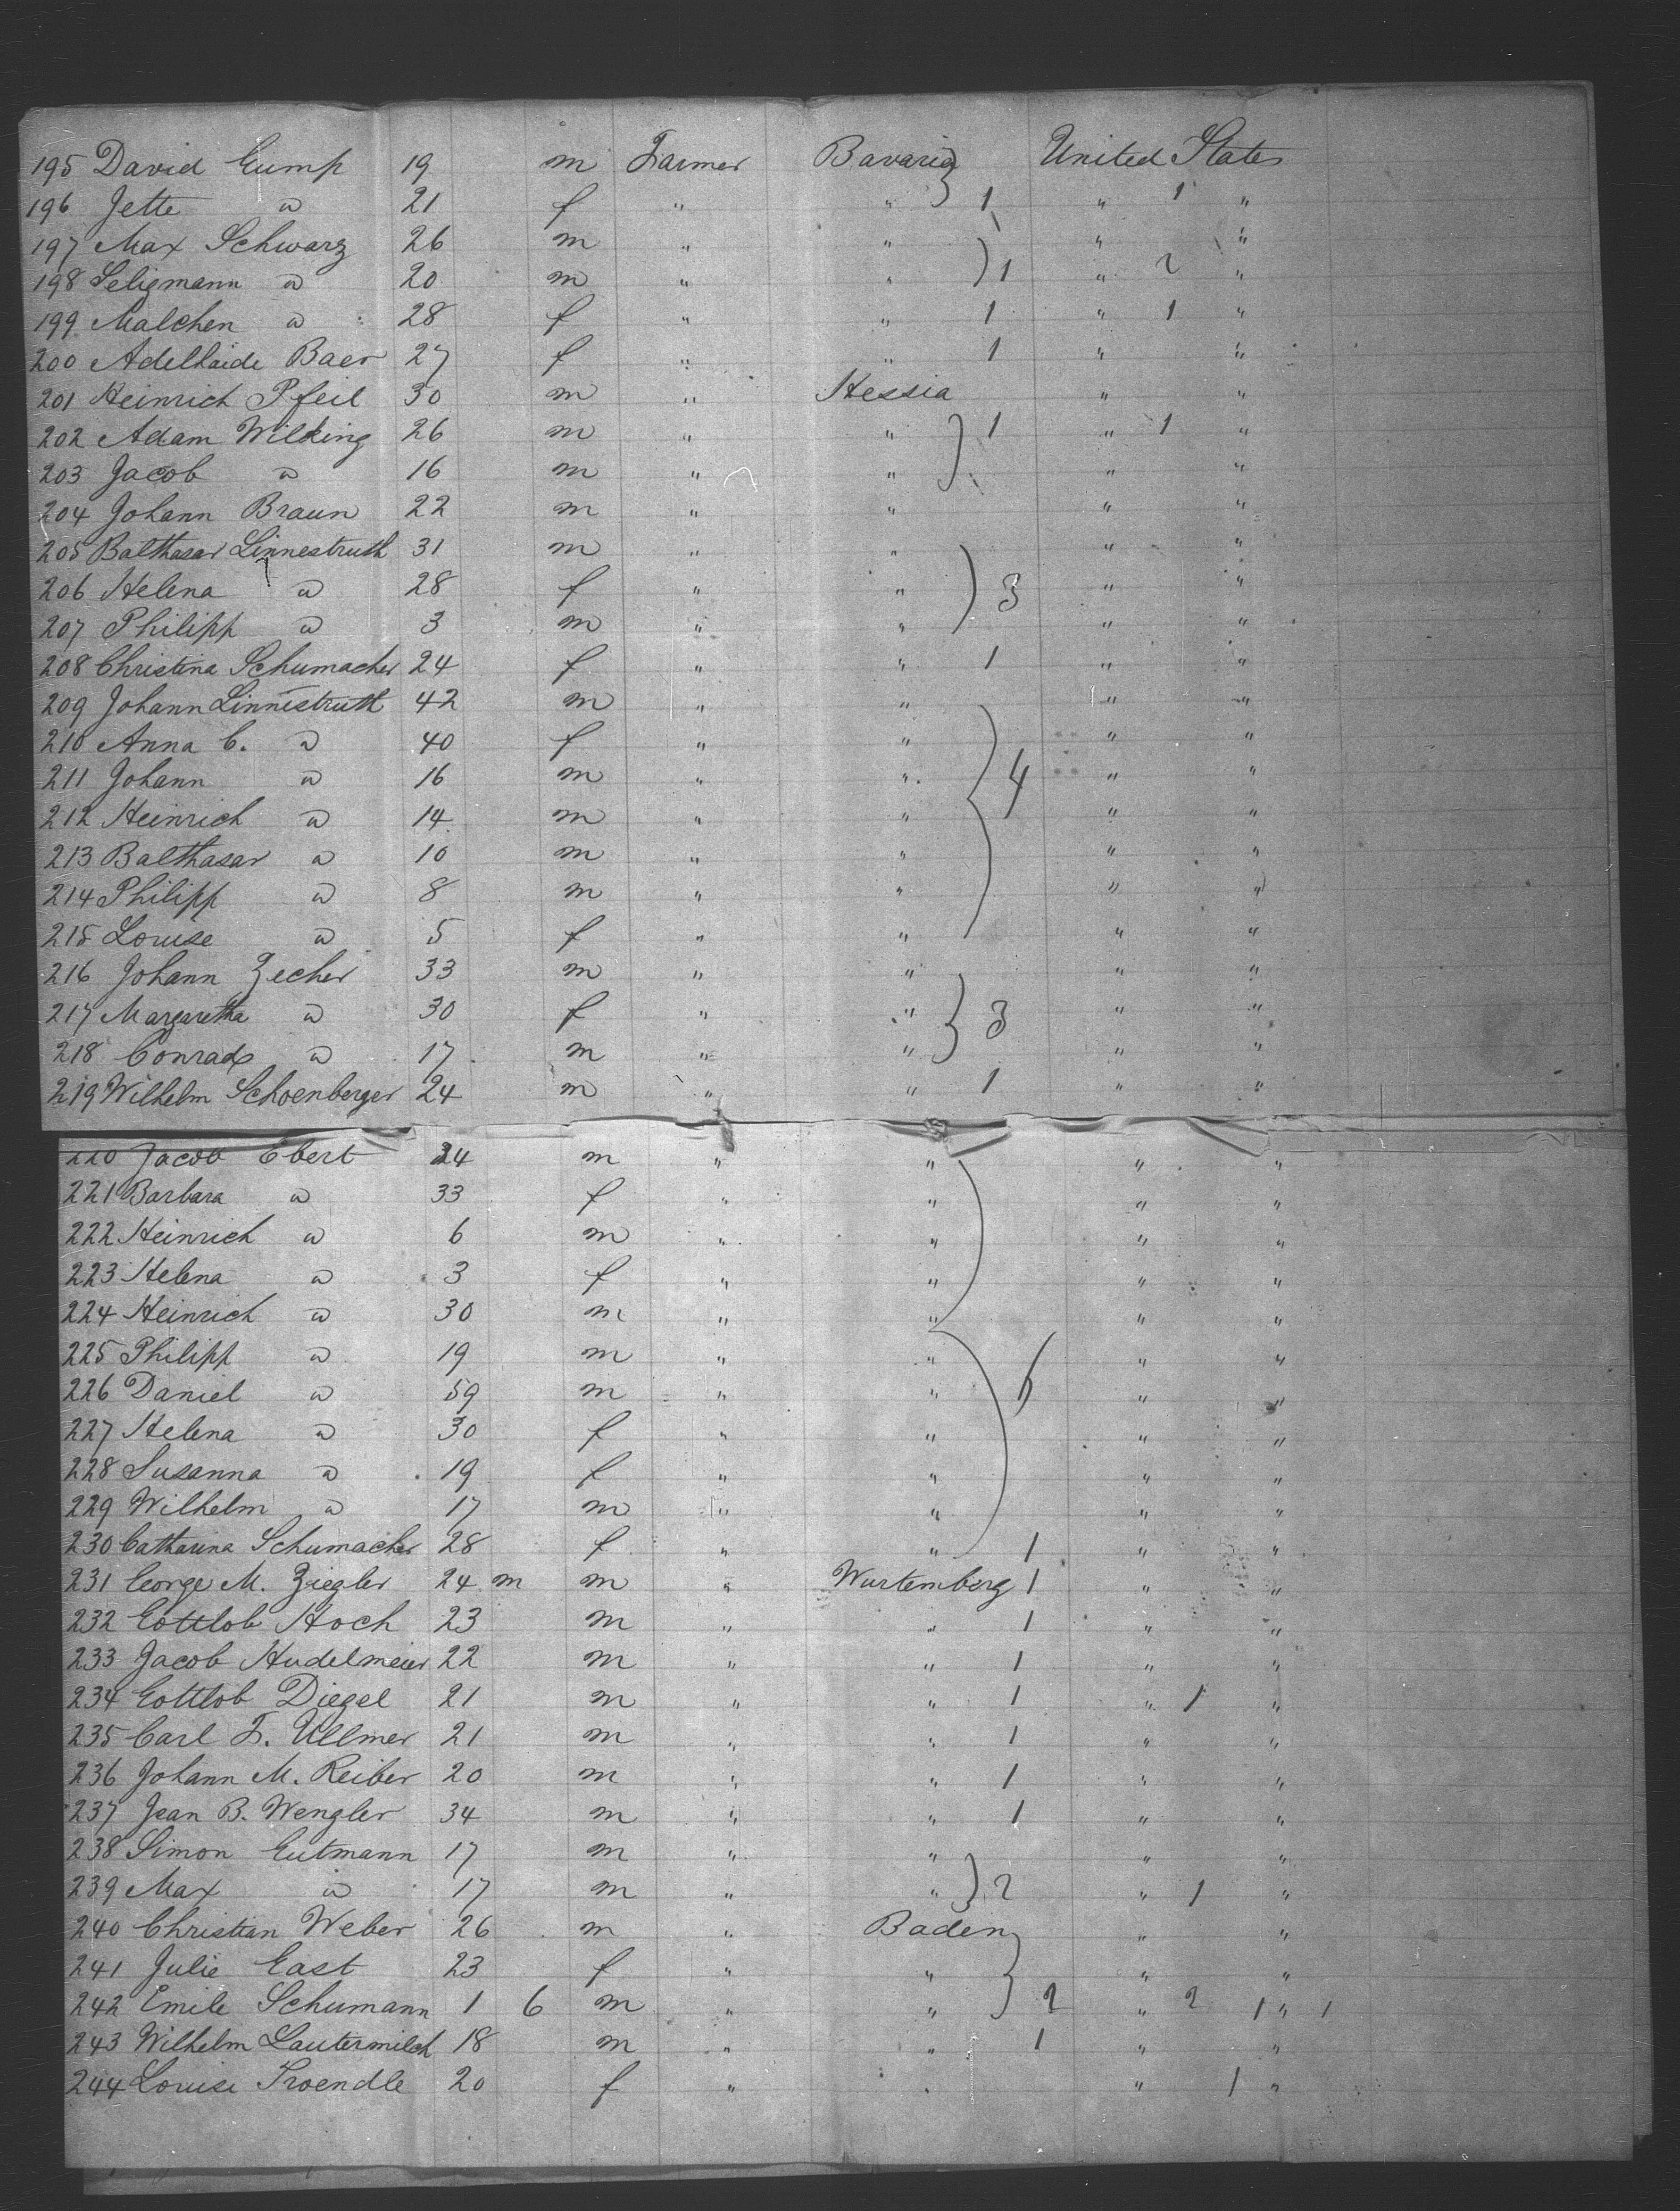 195 David Gump 19 m Farmer Bavaria United States
196 Jette " 21 f " " 1 " 1 "
197 Max Schwarz 26 m " " " "
198 Seligmann " 20 m " " 1 " 2 "
199 Malchen " 28 f " " 1 " 1 "
200 Adelhaide Baer 27 f " " 1 " "
201 Heinrich Pfeil 30 m " Hessia " "
202 Adam Wilking 26 m " " 1 " 1 "
203 Jacob " 16 m " " " "
204 Johann Braun 22 m " " " "
205 Balthasar Linnestruth 31 m " " " "
206 Helena " 28 f " " 3 " "
207 Philipp " 3 m " " " "
208 Christina Schumacher 24 f " " 1 " "
209 Johann Linnestruth 42 m " " " "
210 Anna C. " 40 f " " " "
211 Johann " 16 m " " 4 " "
212 Heinrich " 14 m " " " "
213 Balthasar " 10 m " " " "
214 Philipp " 8 m " " " "
215 Louise " 5 f " " " "
216 Johann Zecher 33 m " " " "
217 Margaretha " 30 f " " 3 " "
218 Conrad " 17 m " " " "
219 Wilhelm Schoenberger 24 m " " 1 " "
220 Jacob Ebert 34 m " " " "
221 Barbara " 33 f " " " "
222 Heinrich " 6 m " " " "
223 Helena " 3 f " " " "
224 Heinrich " 30 m " " " "
225 Philipp " 19 m " " " "
226 Daniel " 59 m " " " "
227 Helena " 30 f " " " "
228 Susanna " 19 f " " " "
229 Wilhelm " 17 m " " " "
230 Catharina Schumacher 28 f " " 1 " "
231 George M. Ziegler 24 m m " Wurtemberg 1 " "
232 Gottlob Hoch 23 m " " 1 " "
233 Jacob Hudelmeier 22 m " " 1 " "
234 Gottlob Diegel 21 m " " 1 " 1 "
235 Carl F. Ullmer 21 m " " 1 " "
236 Johann M. Reiber 20 m " " 1 " "
237 Jean B. Wengler 34 m " " 1 " "
238 Simon Gutmann 17 m " " " "
239 Max " 17 m " " 2 " 1 "
240 Christian Weber 26 m " Baden " "
241 Julie Gast 23 f " " " "
242 Emile Schumann 1 6 m " " 2 " 2 1 " 1
243 Wilhelm Lautermilch 18 m " " 1 " "
244 Louise Troendle 20 f " " " 1 "